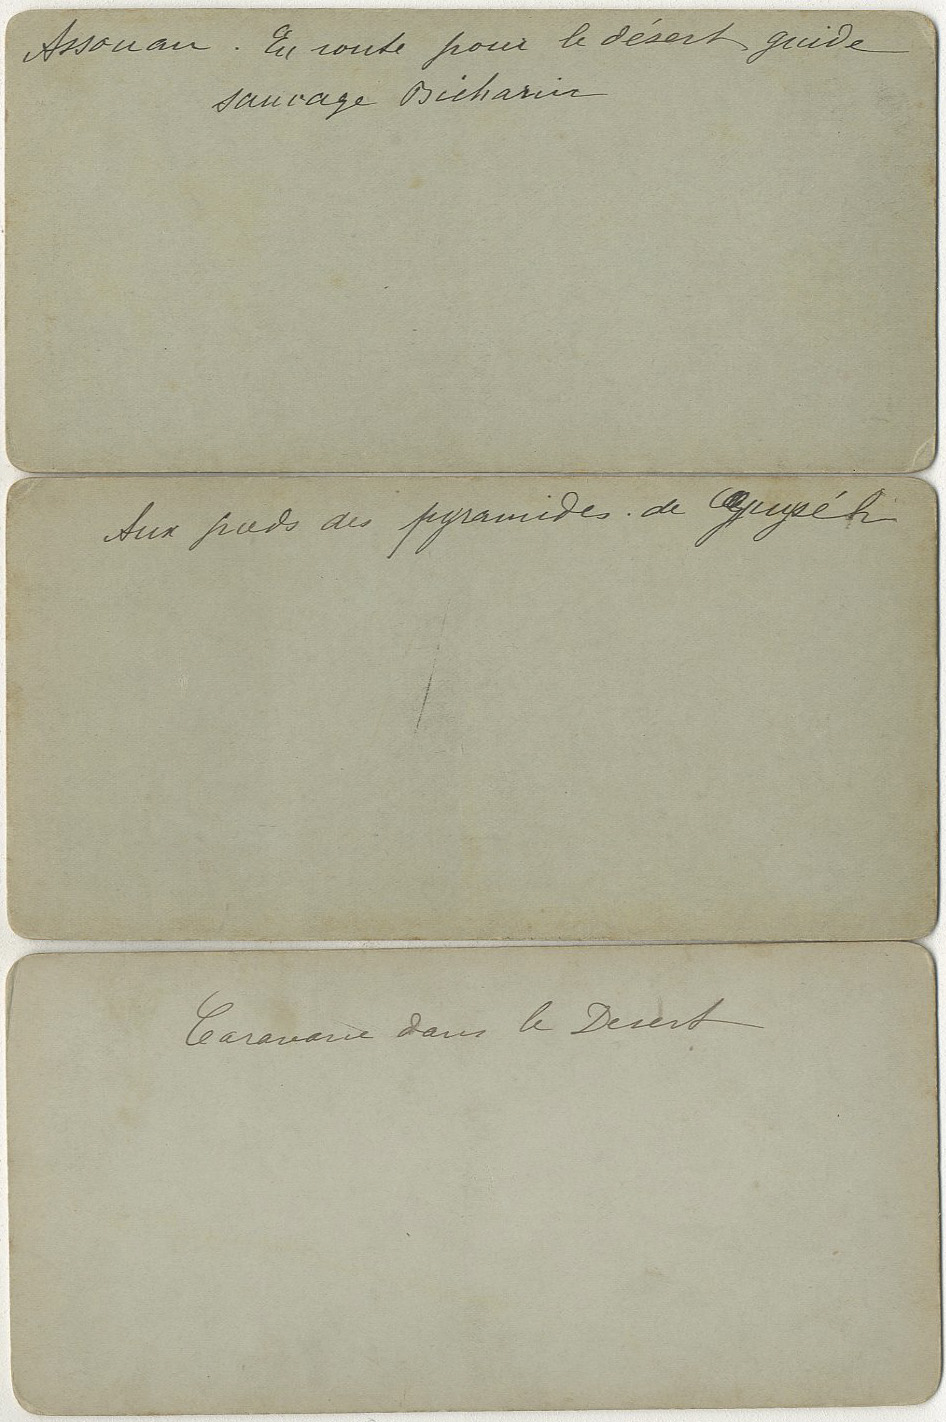 Assouan. En route pour le désert guide
sauvage Bicharin
Aux pieds des pyramides. de
Caravane dans le Desert